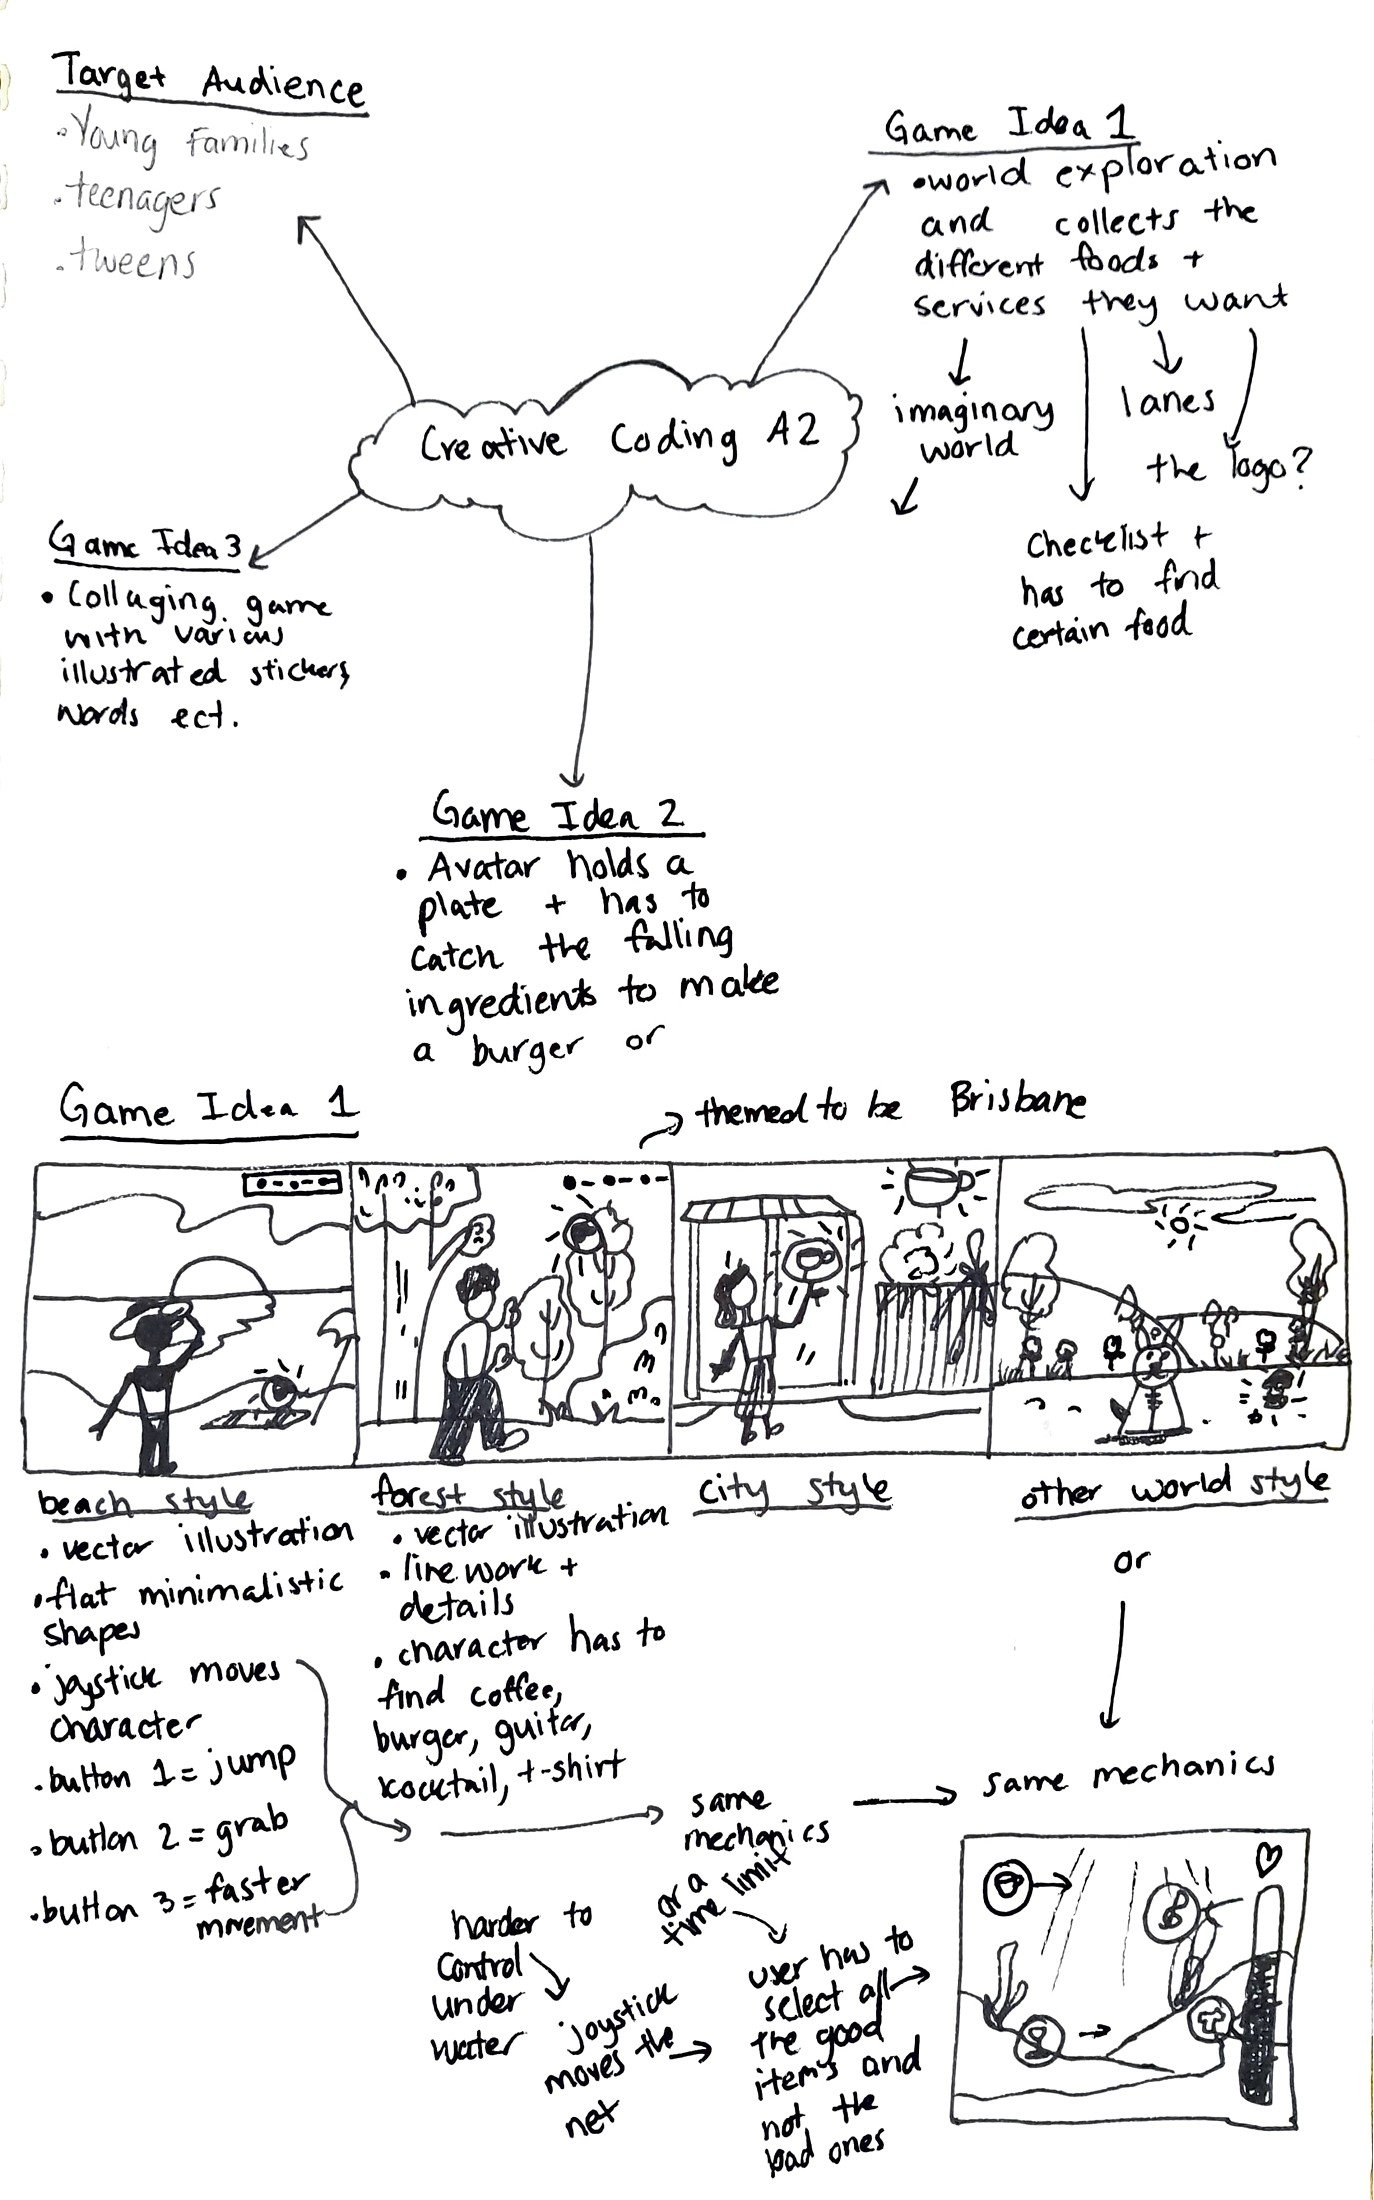 Target Audience
• Young Families
• teenagers
• tweens
Game Idea 1
• world exploration
and collects the
different foods +
services they want
imaginary
world
lanes
the logo?
Checklist +
has to find
certain food
Creative Coding A2
Game Idea 3
• Collaging game
with various
illustrated stickers,
words ect.
Game Idea 2
• Avatar holds a
plate + has to
catch the falling
ingredients to make
a burger or
Game Idea 1
themed to be Brisbane
beach style
• vector illustration
• flat minimalistic
shapes
• joystick moves
character
• button 1 = jump
• button 2 = grab
• button 3 = faster
movement
forest style
• vector illustration
• line work +
details
• character has to
find coffee,
burger, guitar,
kocktail, t-shirt
city style
other world style
or
same mechanics
same
mechanics
or a
time limit
harder to
control
under
water
joystick
moves the
net
user has to
select all
the good
items and
not the
bad ones